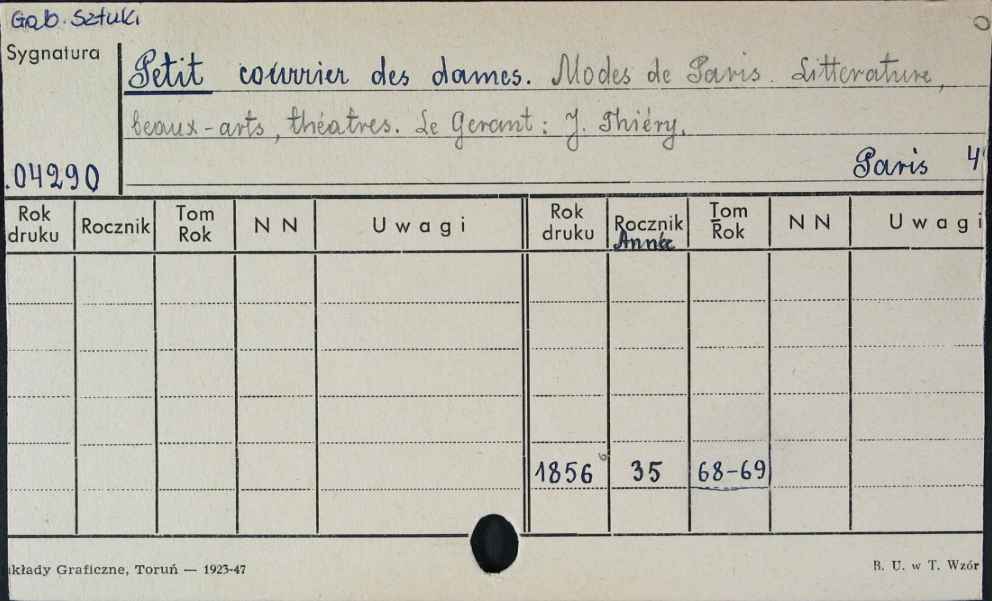 Gab. Sztuki
Sygnatura
Petit courrier des dames. Modes de Paris. Litterature,
beaux-arts, théatres. Le Gerant: J. Thiéry.
.04290
Paris 4°
Rok druku Rocznik Tom Rok N N Uwagi Rok druku Rocznik Année Tom Rok N N Uwagi
1856 35 68-69
kłady Graficzne, Toruń — 1923-47
B. U. w T. Wzór